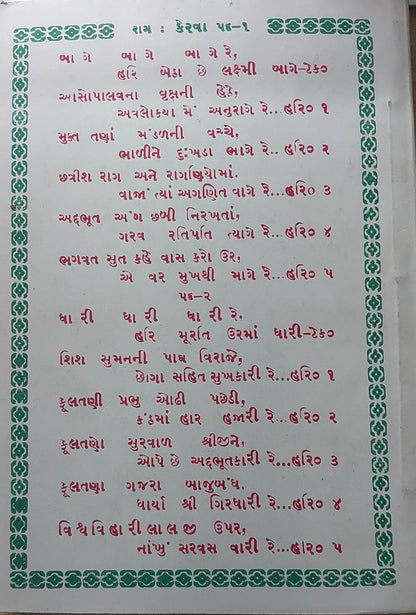 રાગ : કેરવા પદ-૧
બા ગે બા ગે બા ગે રે,
હરિ બેઠા છે લક્ષ્મી બાગે-ટેક૦
આસોપાલવના વૃક્ષની હેઠે,
અવલોકયા મેં અનુરાગે રે...હરિ૦ ૧
મુક્ત તણાં મંડળની વચ્ચે,
ભાળીને દુઃખડા ભાગે રે.. હરિ૦ ૨
છત્રીશ રાગ અને રાગણિયોમાં.
વાજાં ત્યાં અગણિત વાગે રે... હરિ૦ ૩
અદ્દભૂત અંગ છબી નિરખતાં,
ગરવ રતિપતિ ત્યાગે રે...હરિ૦ ૪
ભગવત સુત કહે વાસ કરો ઉર,
એ વર સુખથી માગે રે...હરિ૦ ૫
પદ-૨
ધા રી ધા રી ધા રી રે,
હરિ મૂર્તિ ઉરમાં ધારી-ટેક૦
શિશ સુમનની પાઘ વિરાજે,
છોગા સહિત સુખકારી રે...હરિ૦ ૧
ફૂલતણી પ્રભુ ઓઢી પછેડી,
કંઠમાં હાર હજારી રે...હરિ૦ ૨
ફૂલતણો સુરવાળ શ્રીજીને,
ઓપે છે અદ્દભૂતકારી રે...હરિ૦ ૩
ફૂલતણા ગજરા બાજુબંધ,
ધાર્યા શ્રી ગિરધારી રે...હરિ૦ ૪
વિશ્વવિહારીલાલજી ઉપર,
નાંખું સરવસ વારી રે...હરિ૦ ૫